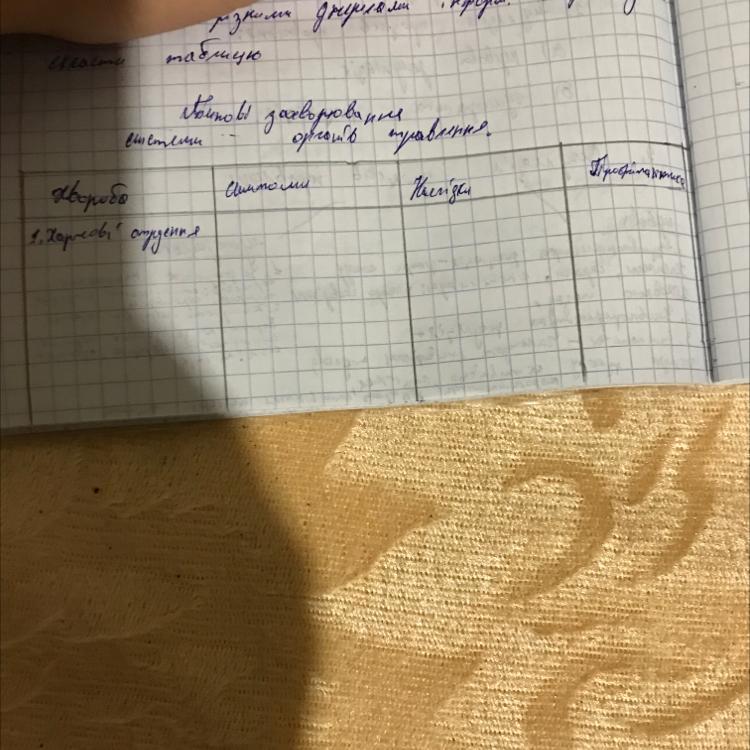 різними джерелами інформ.
скласти таблицю
Типові захворювання
системи органів травлення.
Хвороба Симптоми Наслідки Профілактика
1. Харчові отруєння